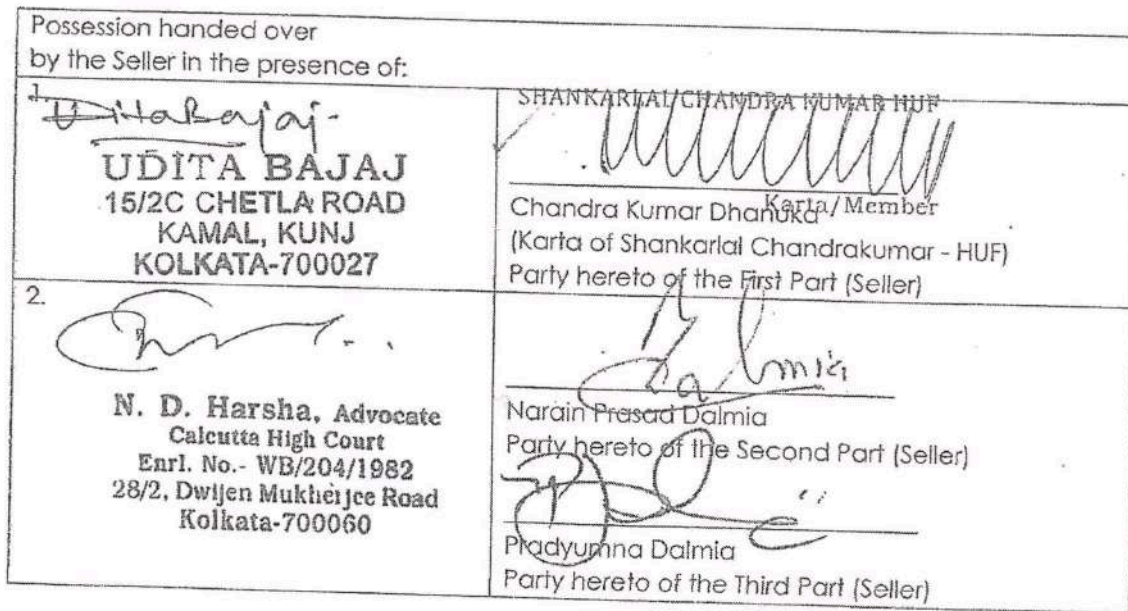 Possession handed over
by the Seller in the presence of:
1.
Udita Bajaj
UDITA BAJAJ
15/2C CHETLA ROAD
KAMAL, KUNJ
KOLKATA-700027
SHANKARLAL CHANDRA KUMAR HUF
Karta/Member
Chandra Kumar Dhanuka
(Karta of Shankarlal Chandrakumar - HUF)
Party hereto of the First Part (Seller)
2.
N. D. Harsha, Advocate
Calcutta High Court
Enrl. No.- WB/204/1982
28/2, Dwijen Mukherjee Road
Kolkata-700060
Dalmia
Narain Prasad Dalmia
Party hereto of the Second Part (Seller)
Pradyumna Dalmia
Party hereto of the Third Part (Seller)